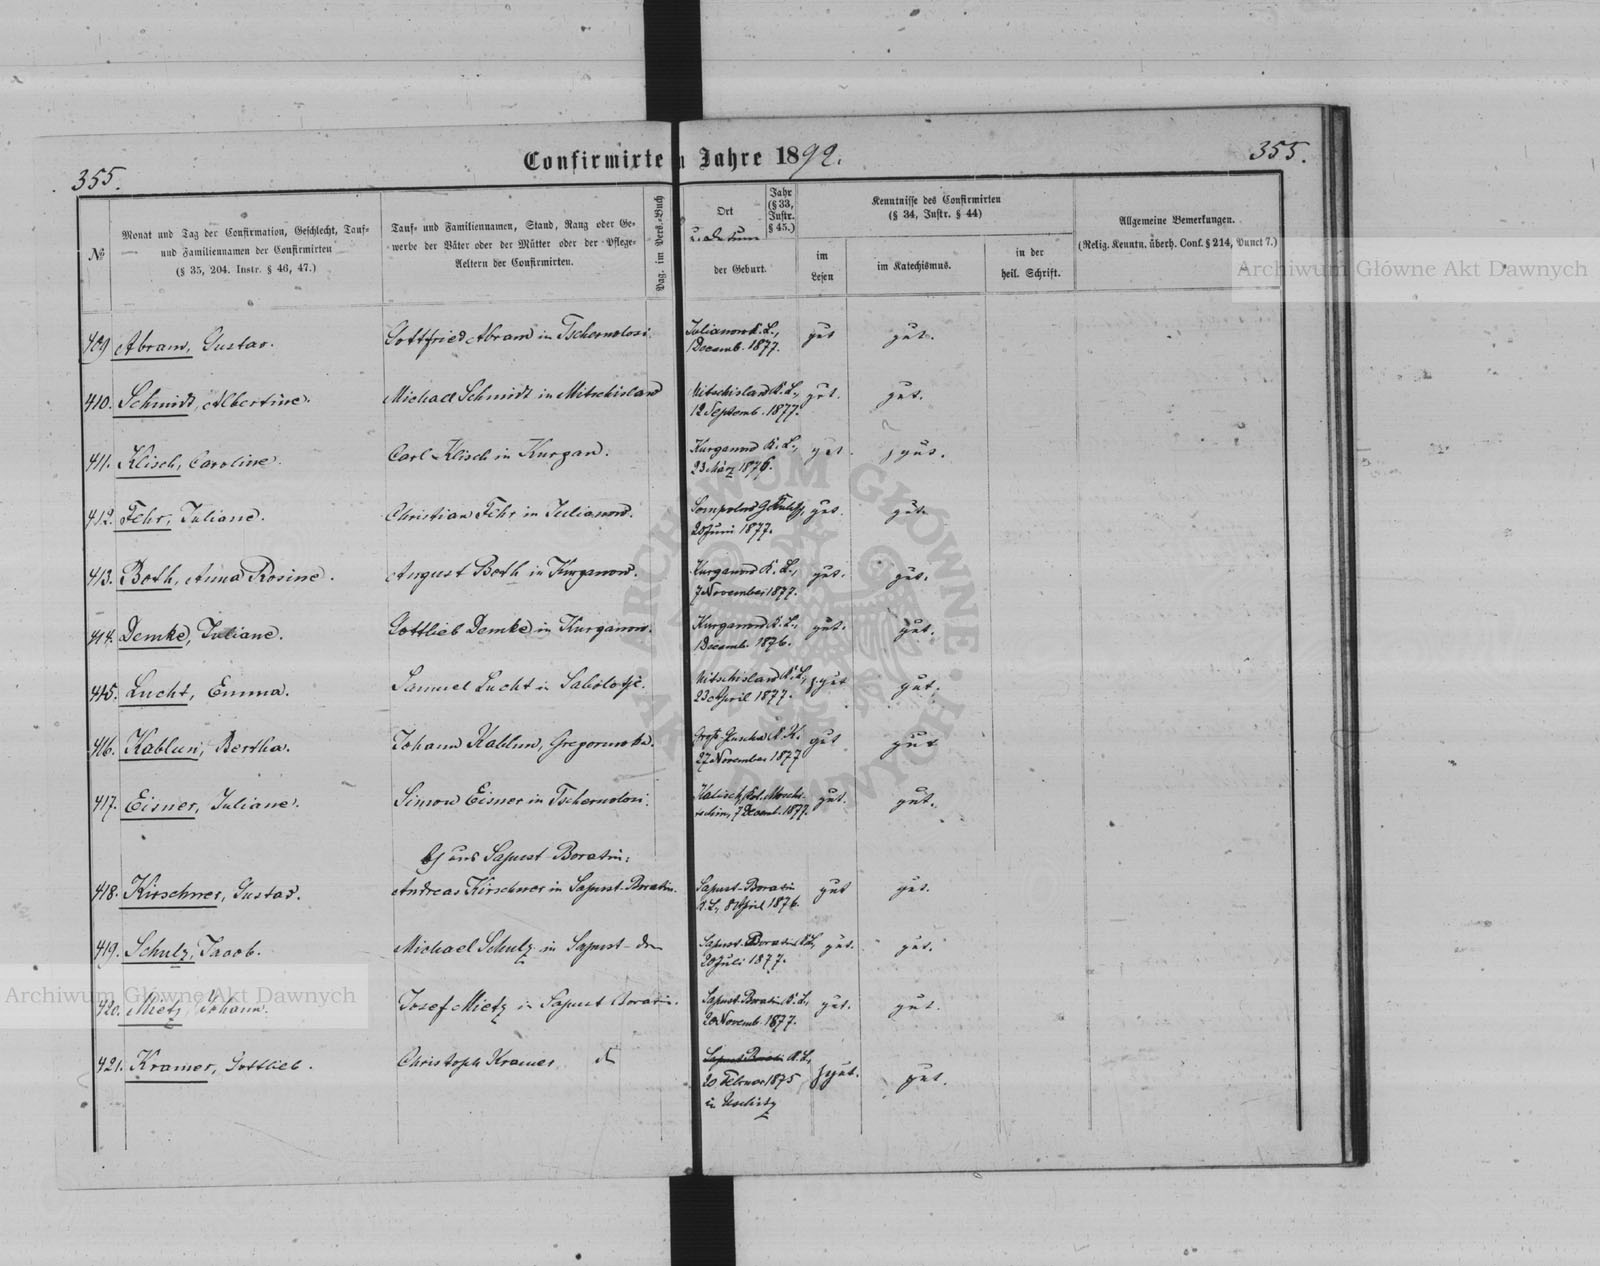 355.
Confirmirte n Jahre 1892.
355.
№
Monat und Tag der Confirmation, Geschlecht, Tauf-
und Familiennamen der Confirmirten
(§ 35, 204. Instr. § 46, 47.)
Tauf- und Familiennamen, Stand, Rang oder Ge-
werbe der Väter oder der Mütter oder der Pflege-
Aeltern der Confirmirten.
Pag. im Pers.-Buch
Ort
u. Datum
der Geburt.
Jahr
(§ 33,
Instr.
§ 45.)
Kenntnisse des Confirmirten
(§ 34, Instr. § 44)
im
Lesen
im Katechismus.
in der
heil. Schrift.
Allgemeine Bemerkungen.
(Relig. Kenntn. überh. Conf. § 214, Punct 7.)
409 Abram, Gustav. Gottfried Abram in Tschernolosi. Julianow K. L., gut gut.
1 Decemb. 1877.
410. Schmidt, Albertine. Michael Schmidt in Mitschisland Mitschisland K. L., gut. gut.
12 Septemb. 1877.
411. Klisch, Caroline. Carl Klisch in Kurgan. Kurganow K. L., gut. gut.
23 März 1876.
412. Fehr, Juliane. Christian Fehr in Julianow. Sompolno gut. gut.
20 Juni 1877.
413. Both, Anna Rosine. August Both in Kurganow. Kurganow K. L., gut. gut.
7 November 1877.
414. Demke, Juliane. Gottlieb Demke in Kurganow. Kurganow K. L., gut. gut.
1 Decemb. 1876.
415. Lucht, Emma. Samuel Lucht in Sabolotje. Mitschisland K. L., gut gut.
23 April 1877.
416. Kablun, Bertha. Johann Kablun, Gregorowka. Gross- K. K. gut gut
27 November 1877
417. Eisner, Juliane. Simon Eisner in Tschernolosi. Kalisch, Kol. gut. gut.
7 Decemb. 1877.
Sapust-Boratin:
418. Kirschner, Gustav. Andreas Kirschner in Sapust-Boratin. Sapust-Boratin gut gut.
K. L., 8 April 1876.
419. Schulz, Jacob. Michael Schulz in Sapust- Sapust-Boratin K L, gut. gut.
20 Juli 1877.
420. Mietz, Johann. Josef Mietz in Sapust Boratin. Sapust-Boratin K. L., gut. gut.
20 Novemb. 1877.
421. Kramer, Gottlieb. Christoph Kramer Sapust-Boratin K. L., gut. gut.
20 Februar 1875
in
Archiwum Główne Akt Dawnych
Archiwum Główne Akt Dawnych
ARCHIWUM GŁÓWNE AKT DAWNYCH